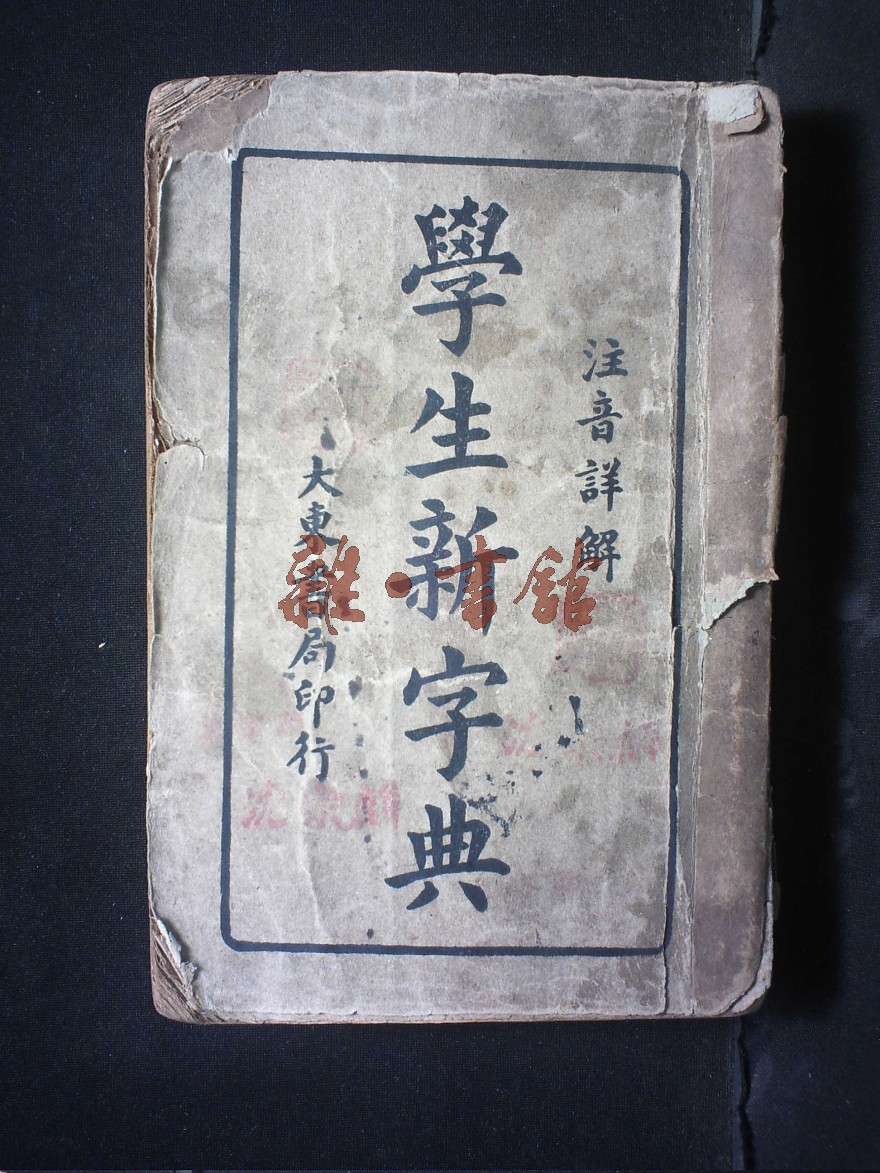 注音詳解
學生新字典
大東書局印行
雜·書館